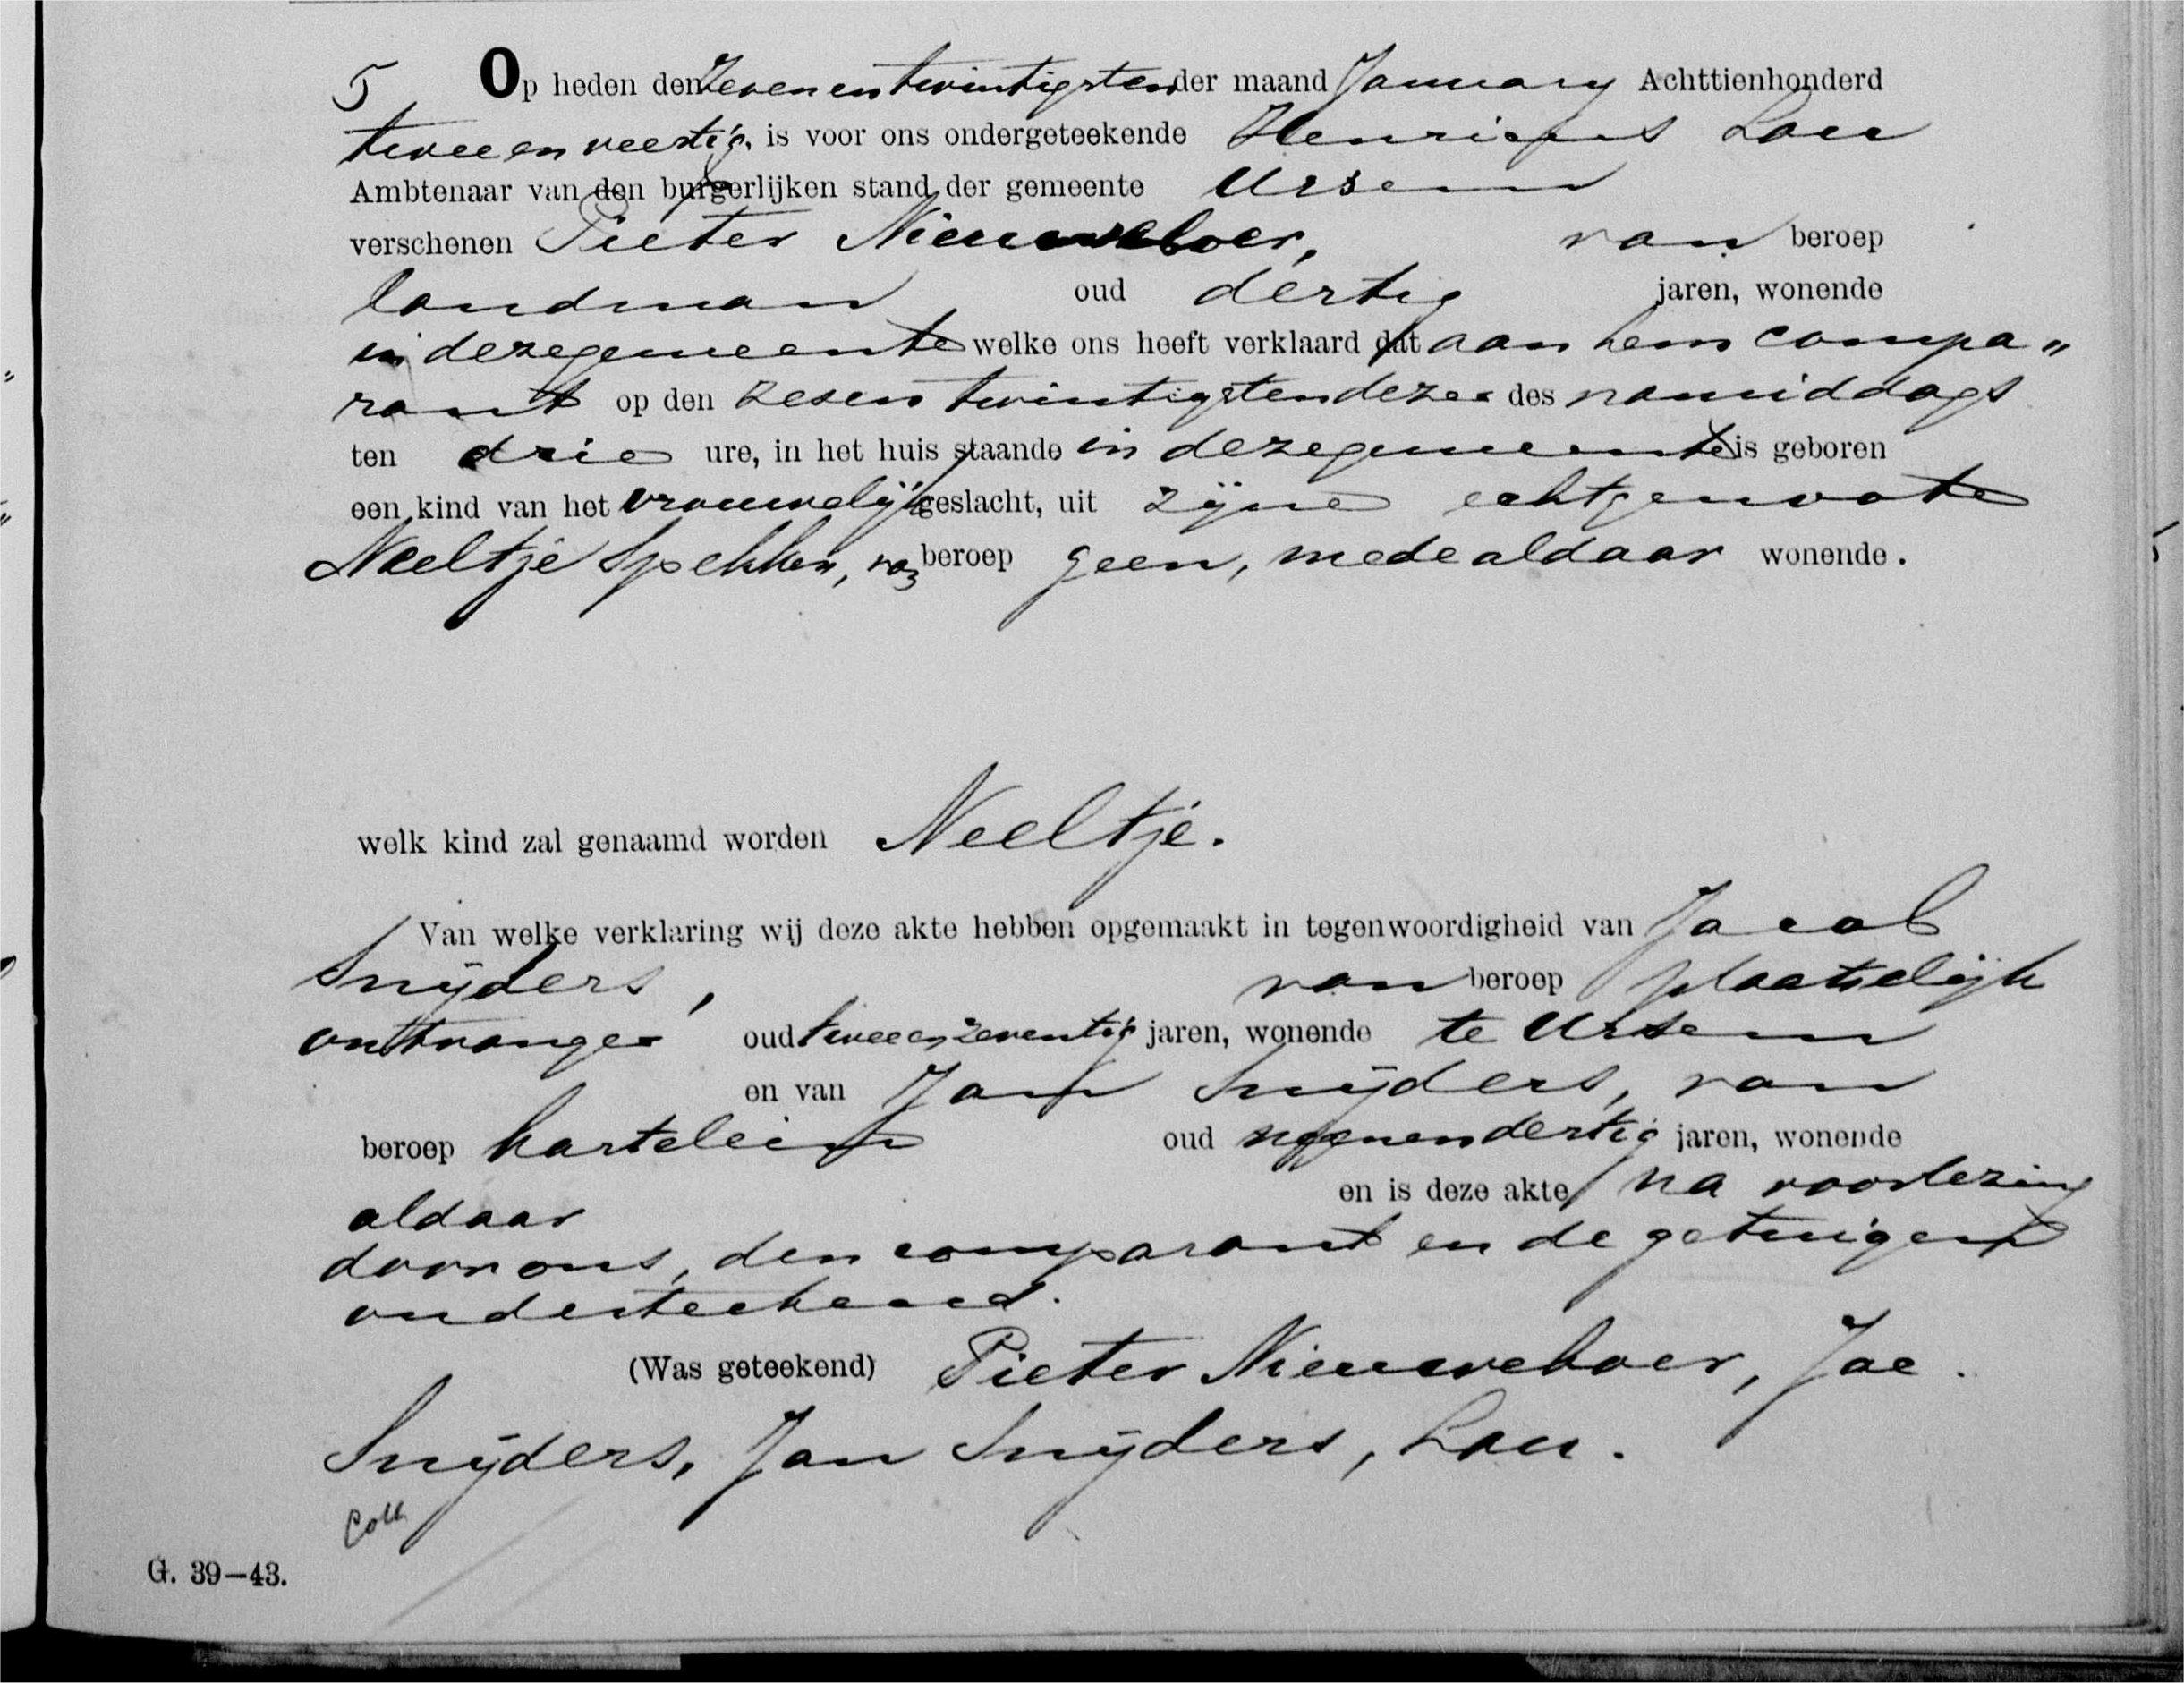 5 Op heden den Zevenentwintigsten der maand January Achttienhonderd
tweeenveertig, is voor ons ondergeteekende Henricus Lou
Ambtenaar van den burgerlijken stand der gemeente Ursem
verschenen Pieter Nieuweboer, van beroep
landman oud dertig jaren, wonende
in dezegemeente welke ons heeft verklaard dat aan hem compa„
rant op den zesentwintigsten dezer des namiddags
ten drie ure, in het huis staande in dezegemeente is geboren
een kind van het vrouwelijk geslacht, uit zijne echtgenoote
Neeltje Spekken, van beroep geen, mede aldaar wonende.
welk kind zal genaamd worden Neeltje.
Van welke verklaring wij deze akte hebben opgemaakt in tegenwoordigheid van Jacob
Snijders, van beroep plaatselijk
ontvanger oud tweeenzeventig jaren, wonende te Ursem
en van Jan Snijders, van
beroep kastelein oud negenendertig jaren, wonende
aldaar en is deze akte na voorlezing
door ons, den comparant en de getuigen
onderteekend.
(Was geteekend) Pieter Nieuweboer, Jac.
Snijders, Jan Snijders, Lou.
Coll
G. 39–43.